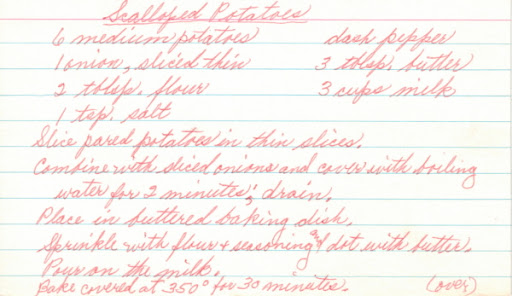 Scalloped Potatoes
6 medium potatoes dash pepper
1 onion, sliced thin 3 tblsp. butter
2 tblsp. flour 3 cups milk
1 tsp. salt
Slice pared potatoes in thin slices.
Combine with sliced onions and cover with boiling
water for 2 minutes; drain.
Place in buttered baking dish.
Sprinkle with flour + seasoning & dot with butter.
Pour on the milk.
Bake covered at 350° for 30 minutes. (over)